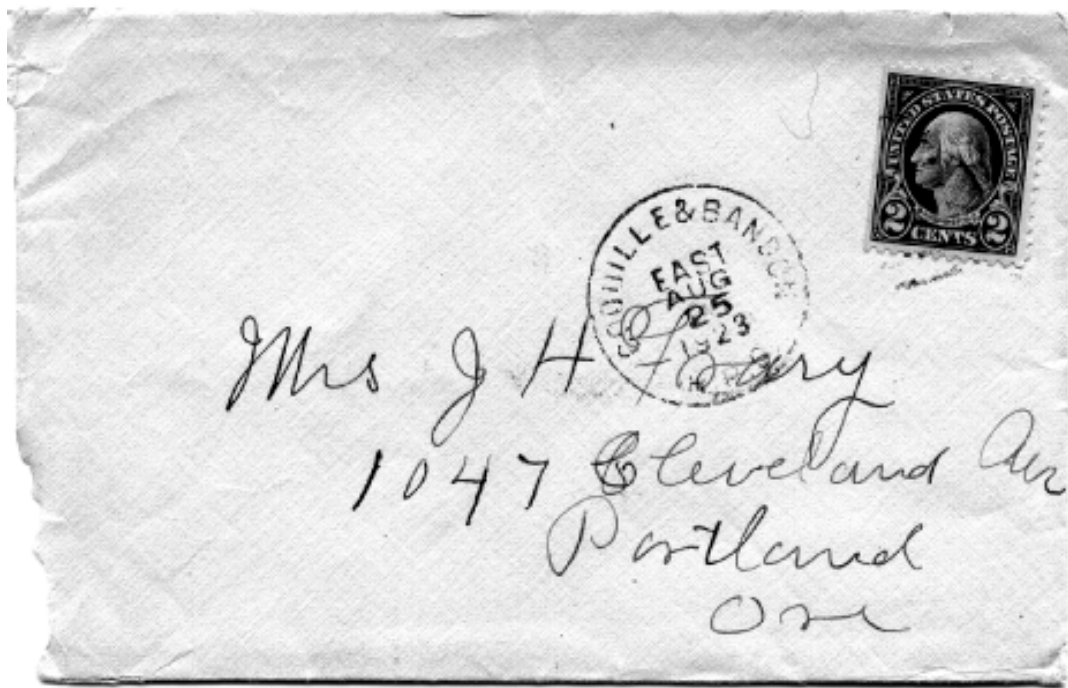 UNITED STATES POSTAGE
2 CENTS 2
COQUILLE & BANDON
EAST
AUG
25
1923
Mrs J H
1047 Cleveland Ave
Portland
Ore